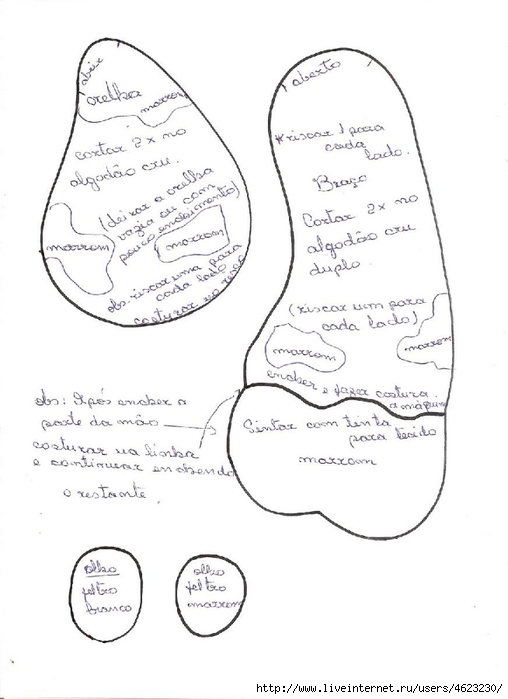 abrir
orelha
marrom
cortar 2x no
algodão cru.
(deixar a orelha
vazia ou com
pouco enchimento)
marrom
marrom
obs: riscar uma para
cada lado
costurar no
aberto
*riscar 1 para
cada
lado.
Braço
Cortar 2x no
algodão cru
duplo.
(riscar um para
cada lado)
marrom
marrom
encher e fazer costura
a máquina
obs: Após encher a
parte da mão
costurar na linha
e continuar enchendo
o restante.
Pintar com tinta
para tecido
marrom
olho
feltro
branco
olho
feltro
marrom
http://www.liveinternet.ru/users/4623230/